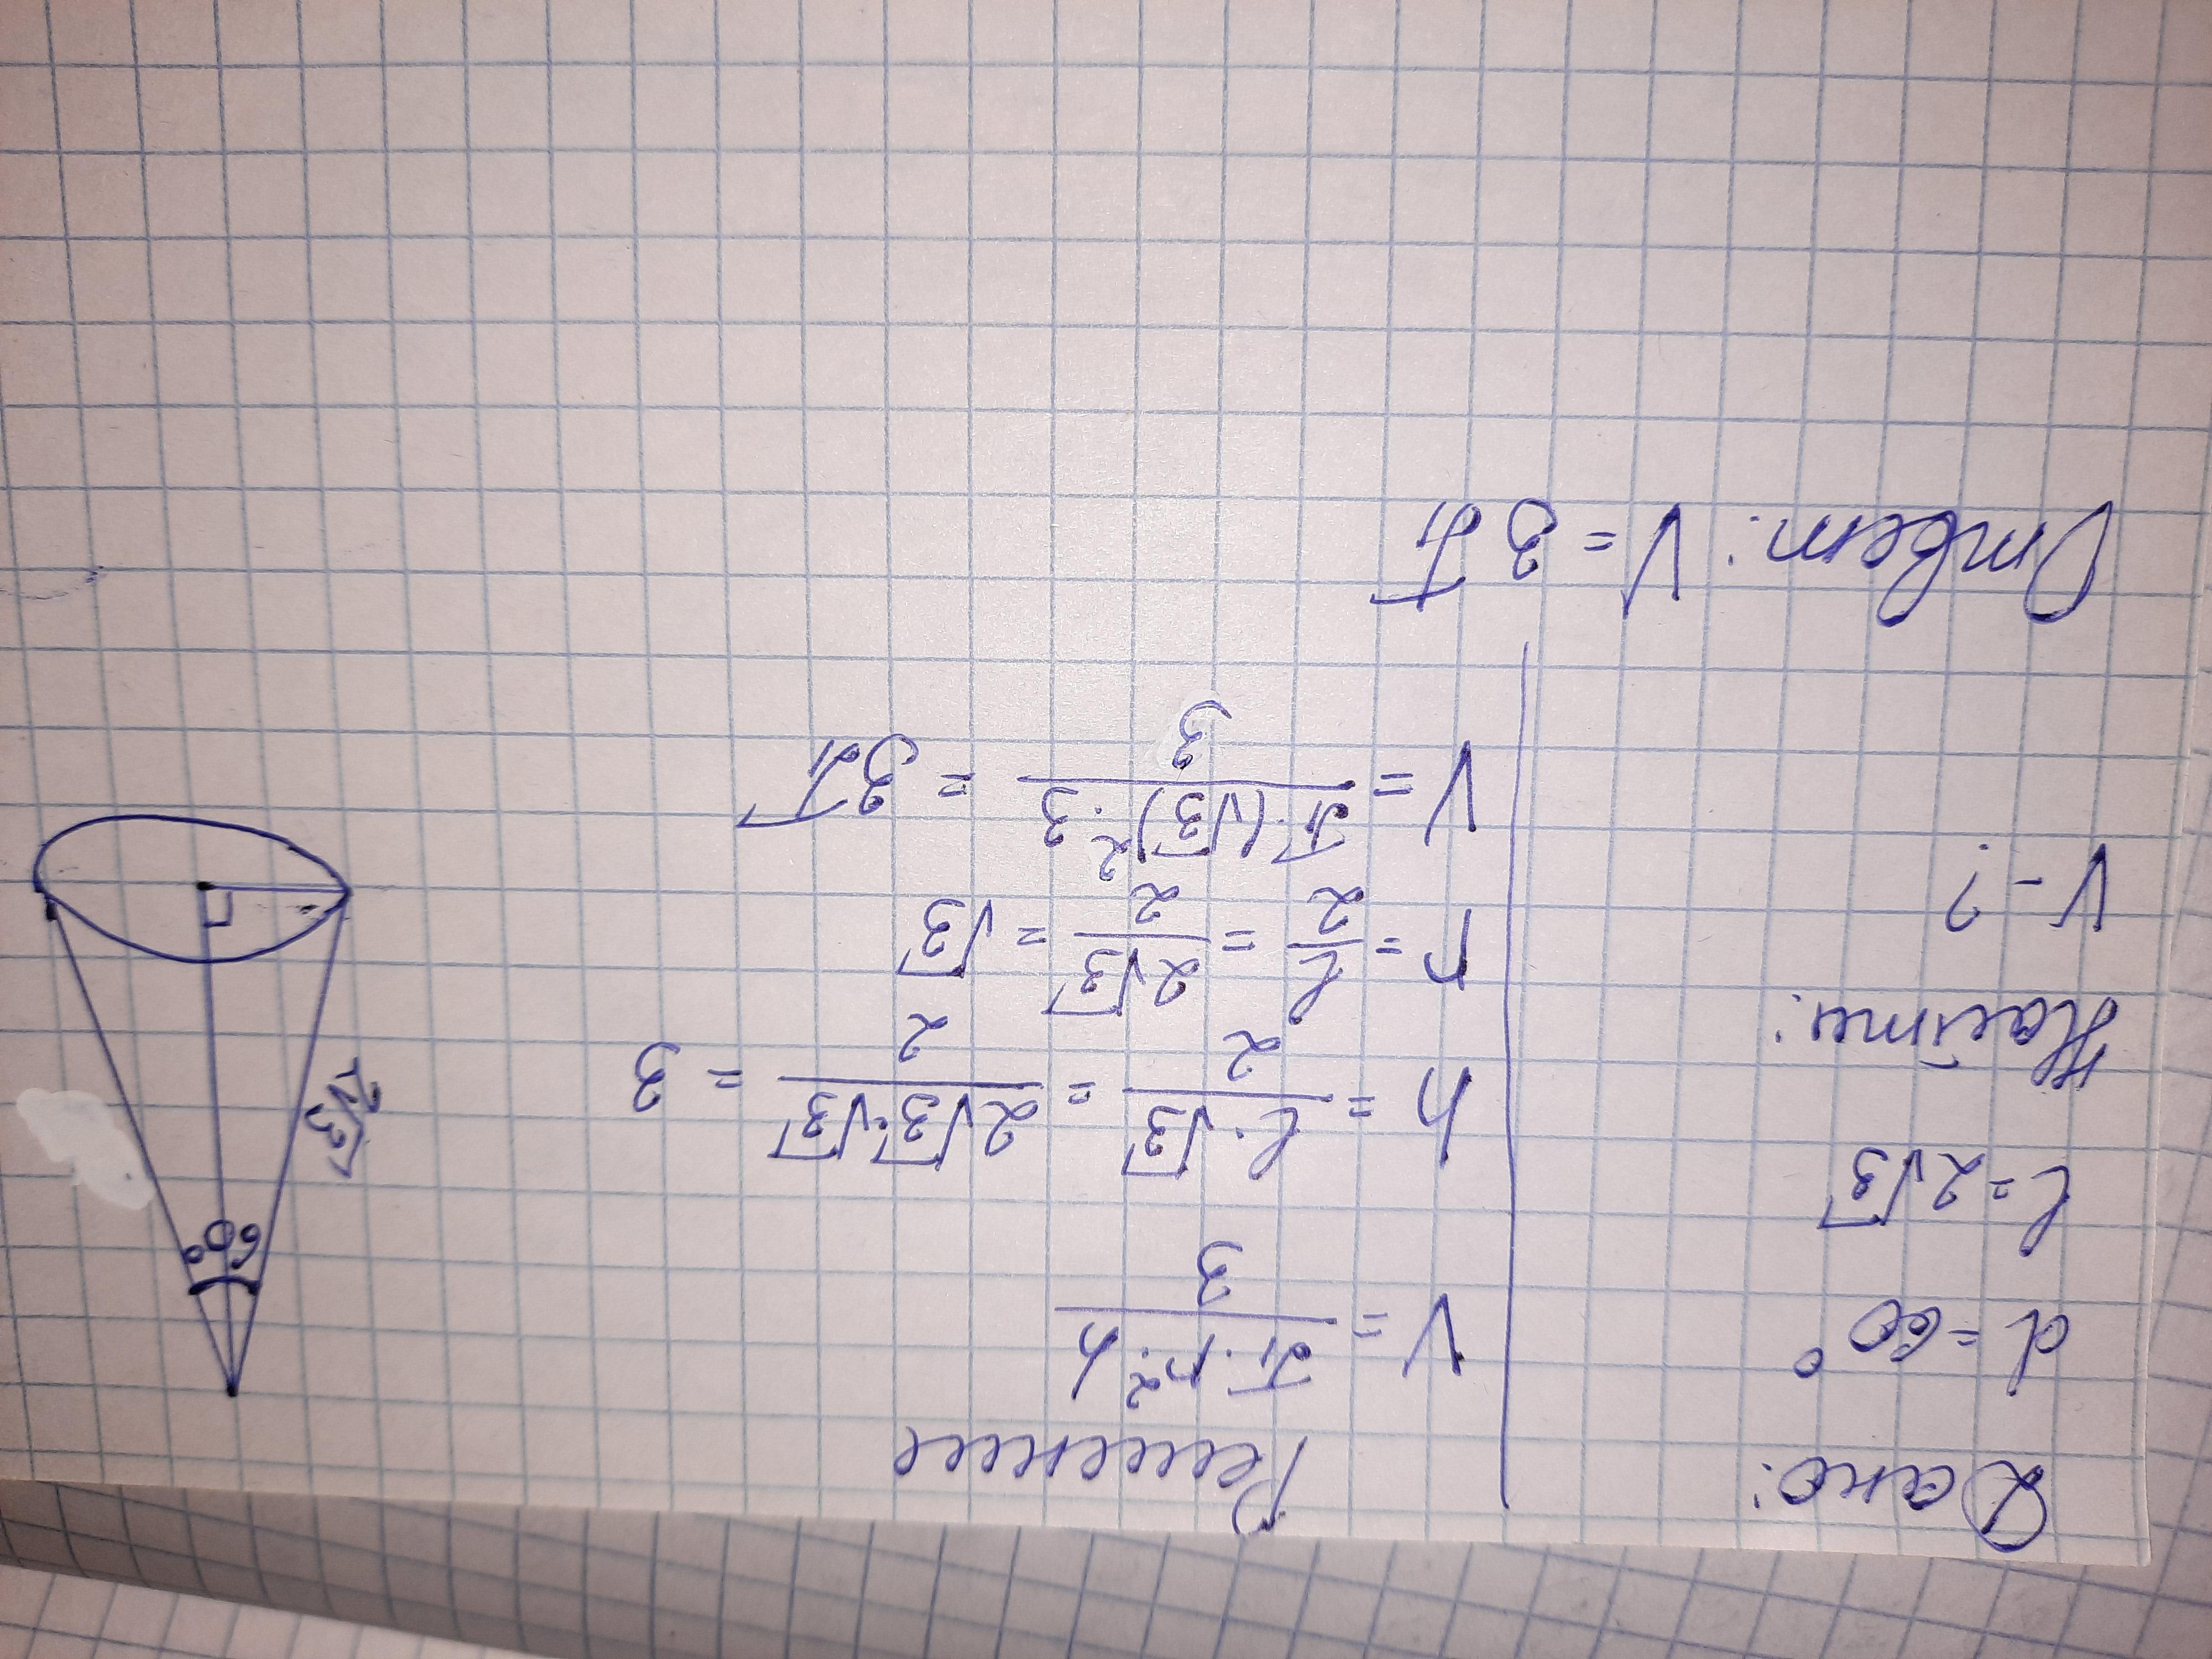 Дано:
α = 60°
l = 2√3
Найти:
V - ?
Решение
V = π · r² · h / 3
h = l · √3 / 2 = 2√3 · √3 / 2 = 3
r = l / 2 = 2√3 / 2 = √3
V = π · (√3)² · 3 / 3 = 3π
60°
2√3
Ответ: V = 3π